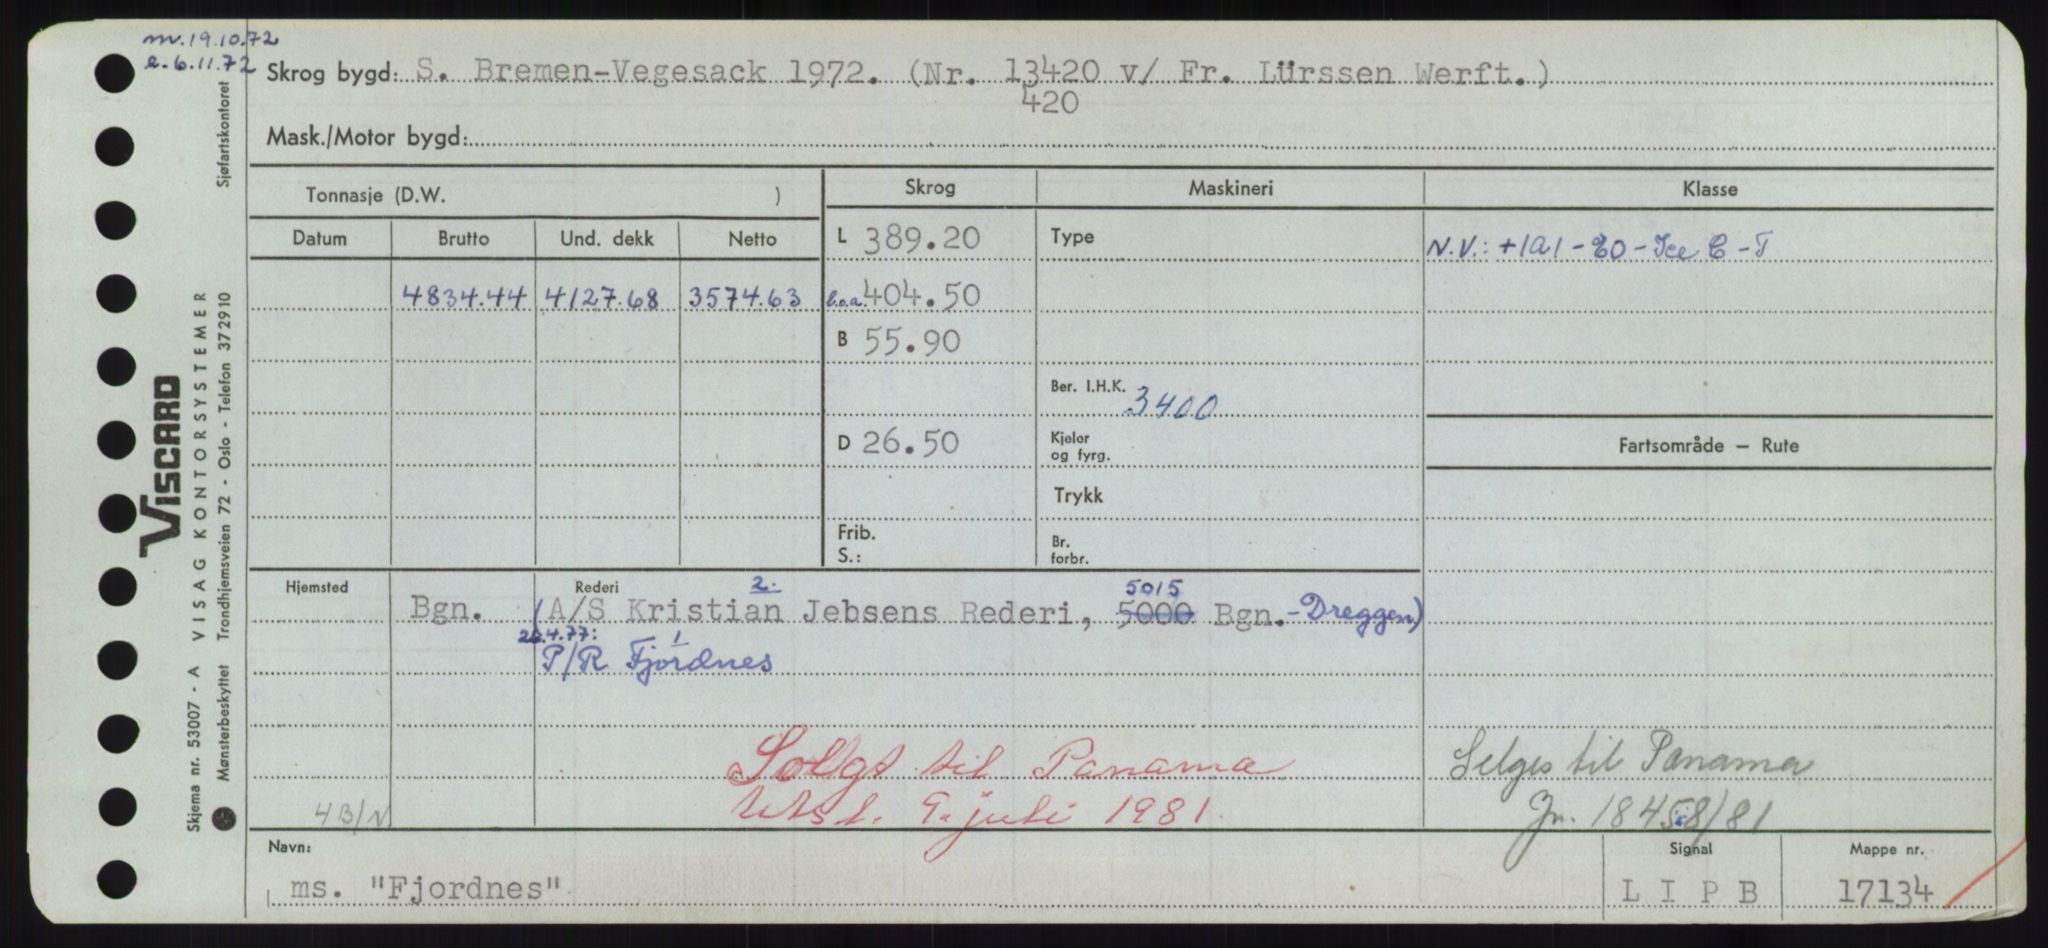 m. 19.10.72
e. 6.11.72
Skrog bygd: S. Bremen-Vegesack 1972. (Nr. 13420 v/ Fr. Lürssen Werft.)
420
Mask./Motor bygd:
Tonnasje (D.W. )
Skrog
Maskineri
Klasse
Datum
Brutto
Und. dekk
Netto
L 389.20
Type
N.V.: +1A1 - E0 - Ice C - T
4834.44
4127.68
3574.63
l.o.a. 404.50
B 55.90
Ber. I.H.K. 3400
D 26.50
Kjeler
og fyrg.
Fartsområde — Rute
Trykk
Frib.
S.:
Br.
forbr.
Hjemsted
Rederi
2.
5015
Bgn.
(A/S Kristian Jebsens Rederi, 5000 Bgn. - Dreggen)
4.77:
1
P/R Fjordnes
Solgt til Panama
9. juli 1981
Selges til Panama
Jn. 18458/81
4B/N
Navn:
ms. "Fjordnes"
Signal
LIPB
Mappe nr.
17134
Sjøfartskontoret
VISCARD
VISAG KONTORSYSTEMER
Trondhjemsveien 72 - Oslo - Telefon 372910
Skjema nr. 53007 - A
Mønsterbeskyttet